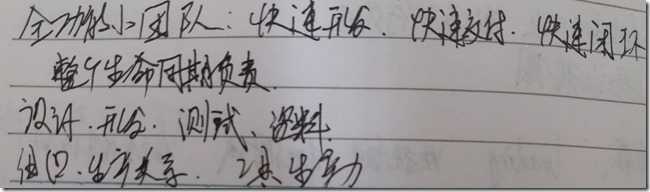 全功能小团队：快速开发、快速交付、快速闭环
整个生命周期负责
设计、开发、测试、资料
组织、生产关系、工具生产力